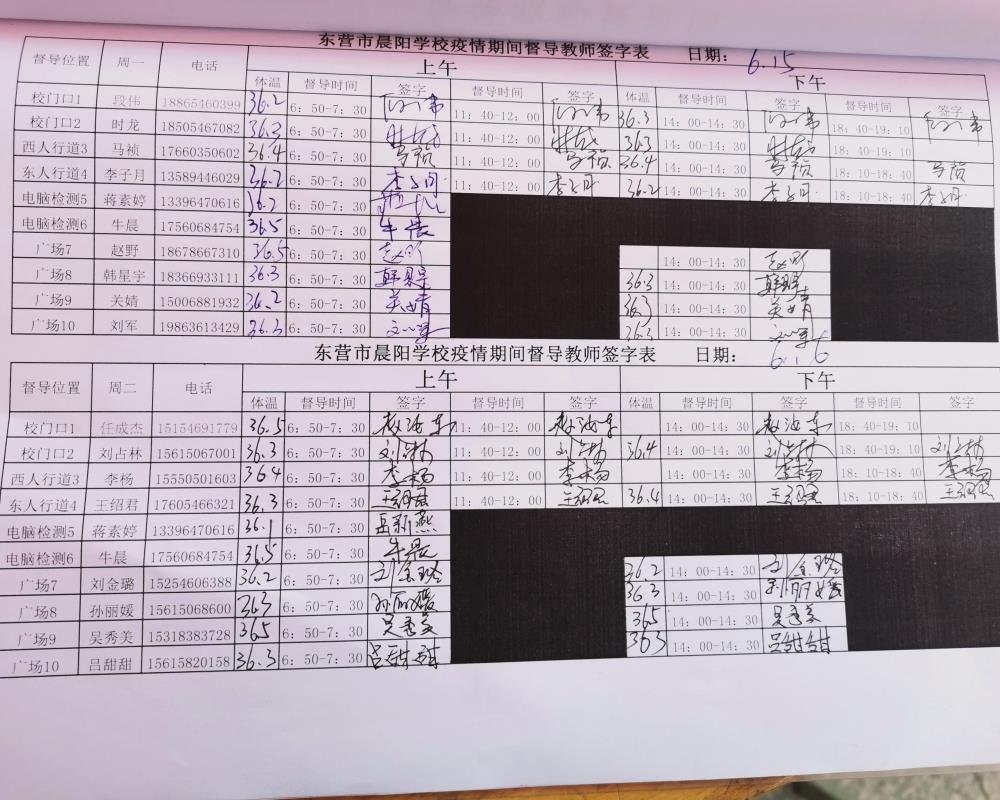 东营市晨阳学校疫情期间督导教师签字表 日期： 6.15
督导位置 周一 电话 上午 下午
体温 督导时间 签字 督导时间 签字 体温 督导时间 签字 督导时间 签字
校门口1 段伟 18865460399 36.2 6：50-7：30 段伟 11：40-12：00 段伟 36.3 14：00-14：30 段伟 18：40-19：10 段伟
校门口2 时龙 18505467082 36.3 6：50-7：30 时龙 11：40-12：00 时龙 36.3 14：00-14：30 时龙 18：40-19：10
西人行道3 马祯 17660350602 36.4 6：50-7：30 马祯 11：40-12：00 马祯 36.4 14：00-14：30 马祯 18：10-18：40 马祯
东人行道4 李子月 13589446029 36.2 6：50-7：30 李子月 11：40-12：00 李子月 36.2 14：00-14：30 李子月 18：10-18：40 李子月
电脑检测5 蒋素婷 13396470616 36.2 6：50-7：30
电脑检测6 牛晨 17560684754 36.5 6：50-7：30 牛晨
广场7 赵野 18678667310 36.5 6：50-7：30 赵野 14：00-14：30 赵野
广场8 韩星宇 18366933111 36.3 6：50-7：30 韩星宇 36.3 14：00-14：30 韩星宇
广场9 关婧 15006881932 36.2 6：50-7：30 关婧 36.3 14：00-14：30 关婧
广场10 刘军 19863613429 36.3 6：50-7：30 刘军 36.3 14：00-14：30 刘军
东营市晨阳学校疫情期间督导教师签字表 日期： 6.16
督导位置 周二 电话 上午 下午
体温 督导时间 签字 督导时间 签字 体温 督导时间 签字 督导时间 签字
校门口1 任成杰 15154691779 36.5 6：50-7：30 赵海东 11：40-12：00 赵海东 14：00-14：30 赵海东 18：40-19：10
校门口2 刘占林 15615067001 36.3 6：50-7：30 刘占林 11：40-12：00 刘占林 36.4 14：00-14：30 刘占林 18：40-19：10 刘占林
西人行道3 李杨 15550501603 36.4 6：50-7：30 李杨 11：40-12：00 李杨 14：00-14：30 李杨 18：10-18：40 李杨
东人行道4 王绍君 17605466321 36.3 6：50-7：30 王绍君 11：40-12：00 王绍君 36.4 14：00-14：30 王绍君 18：10-18：40 王绍君
电脑检测5 蒋素婷 13396470616 36.1 6：50-7：30 岳新燕
电脑检测6 牛晨 17560684754 36.5 6：50-7：30 牛晨
广场7 刘金璐 15254606388 36.2 6：50-7：30 刘金璐 36.2 14：00-14：30 刘金璐
广场8 孙丽媛 15615068600 36.3 6：50-7：30 孙丽媛 36.3 14：00-14：30 孙丽媛
广场9 吴秀美 15318383728 36.5 6：50-7：30 吴秀美 36.5 14：00-14：30 吴秀美
广场10 吕甜甜 15615820158 36.3 6：50-7：30 吕甜甜 36.3 14：00-14：30 吕甜甜